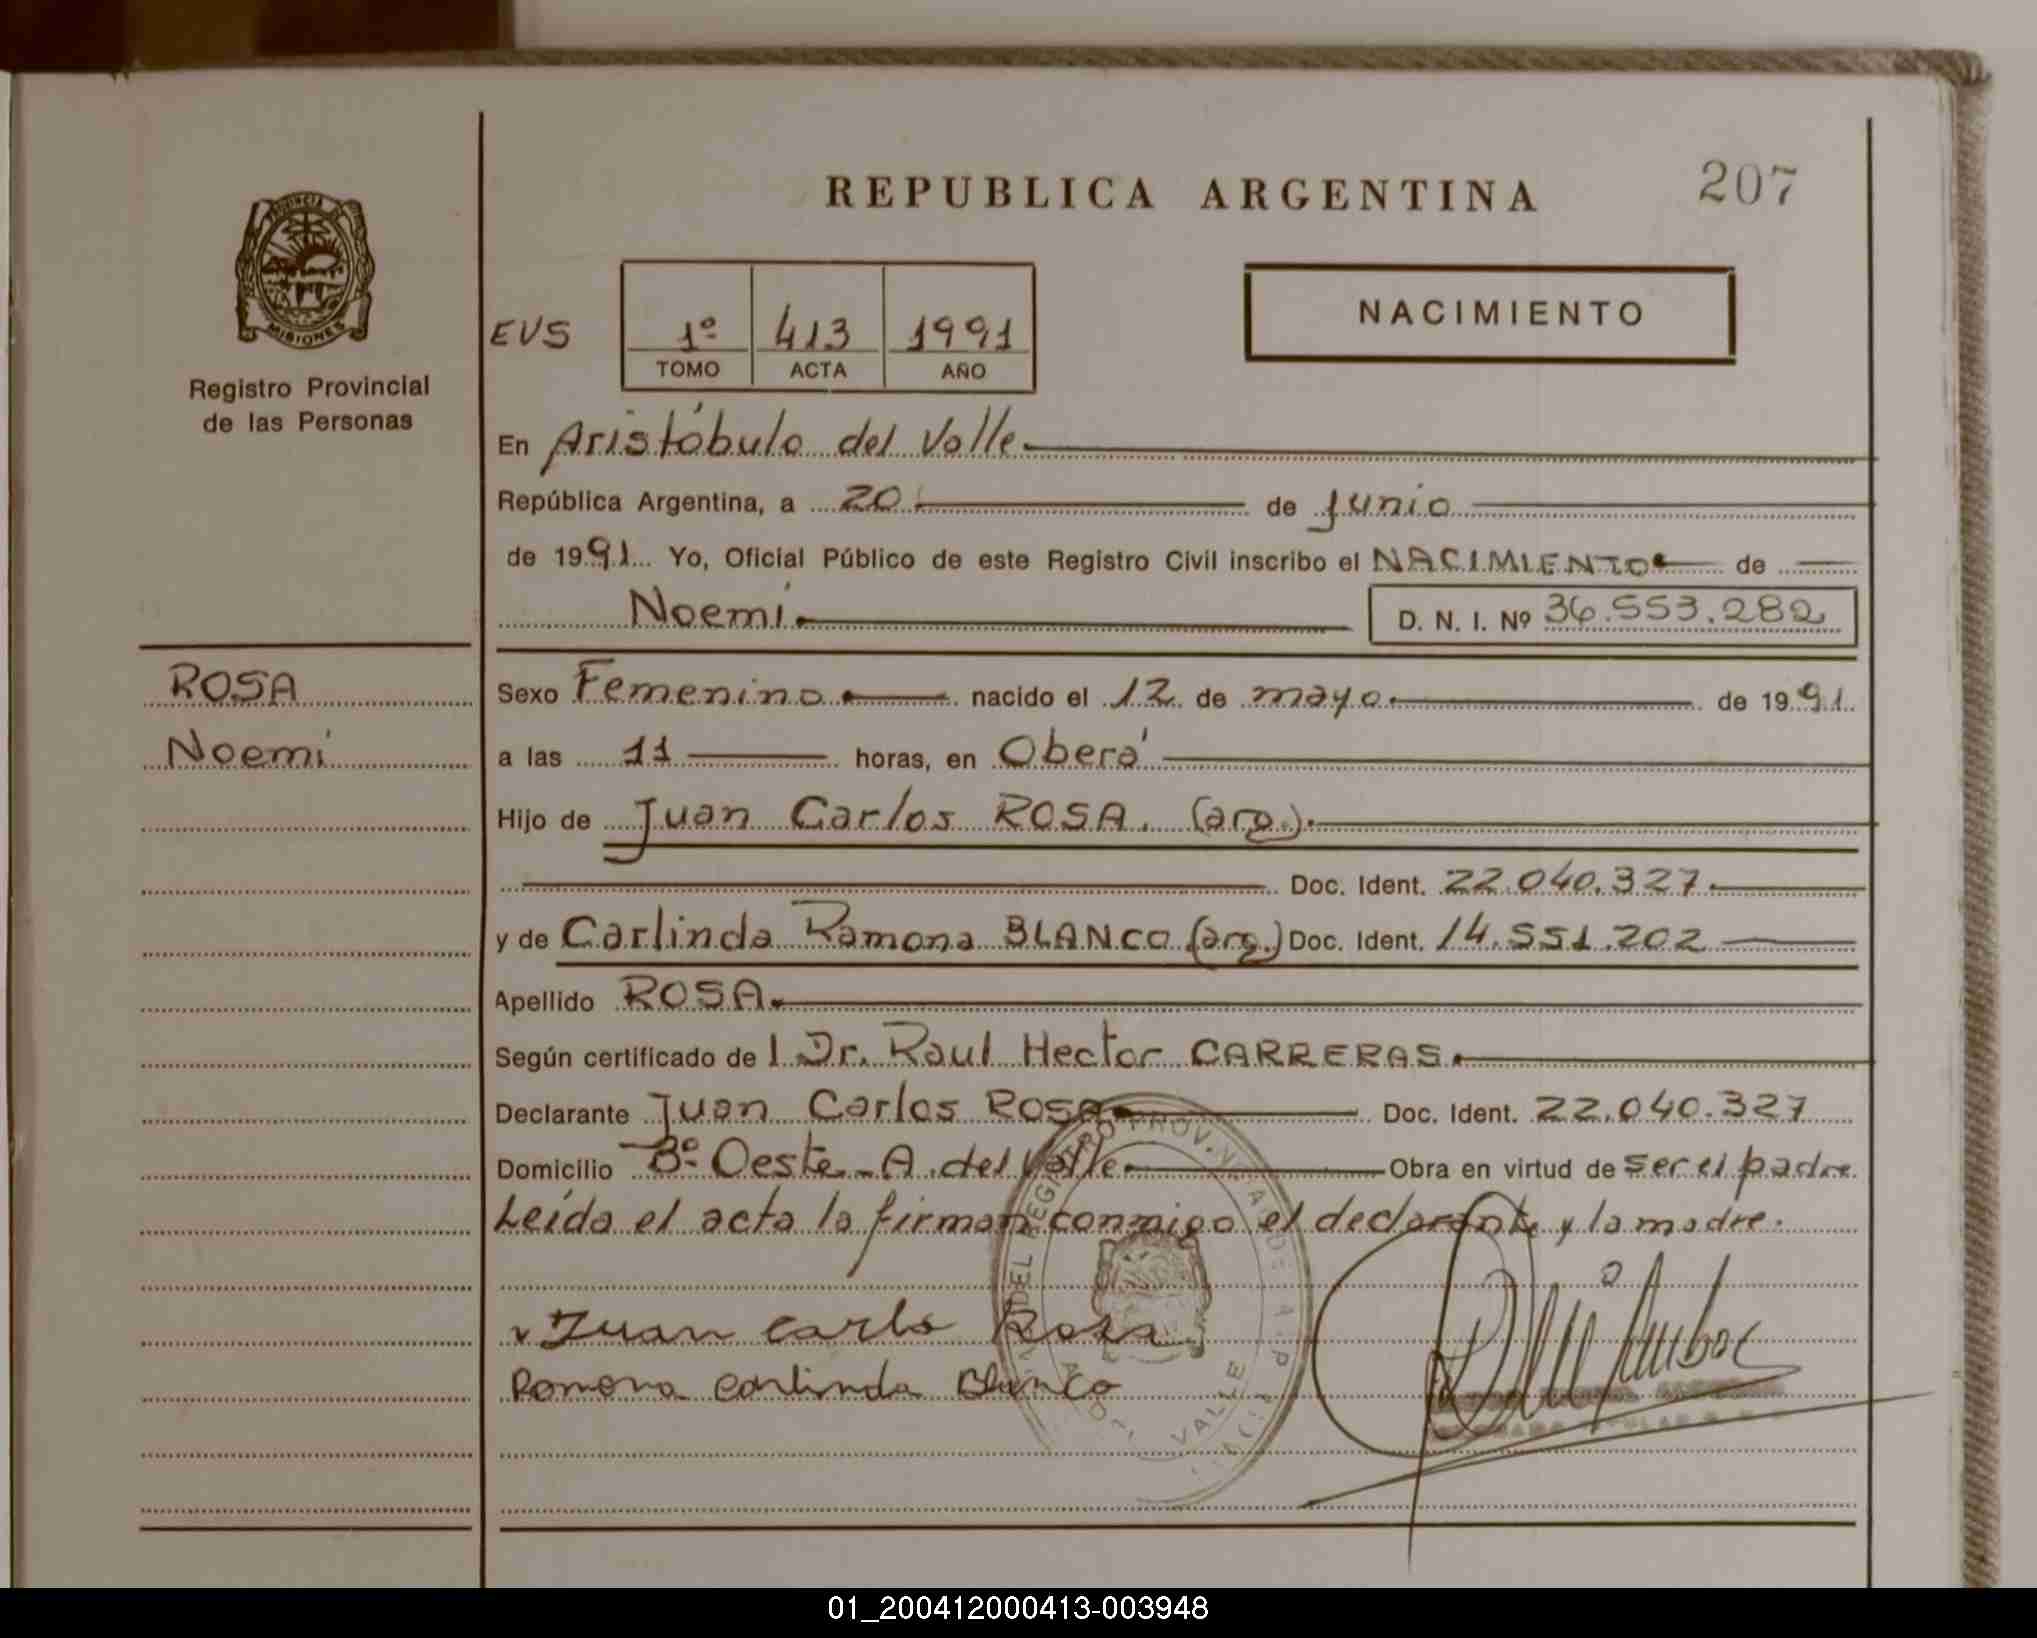 REPUBLICA ARGENTINA
207
PROVINCIA DE
MISIONES
Registro Provincial
de las Personas
EVS
1º 413 1991
TOMO ACTA AÑO
NACIMIENTO
En Aristóbulo del Valle
República Argentina, a 20 de Junio
de 1991 Yo, Oficial Público de este Registro Civil inscribo el NACIMIENTO de
Noemí
D. N. I. Nº 36.553.282
ROSA
Noemí
Sexo Femenino nacido el 12 de mayo de 1991
a las 11 horas, en Oberá
Hijo de Juan Carlos ROSA. (arg.).
Doc. Ident. 22.040.327
y de Carlinda Ramona BLANCO (arg.) Doc. Ident. 14.551.202
Apellido ROSA.
Según certificado de l Dr. Raul Hector CARRERAS.
Declarante Juan Carlos ROSA Doc. Ident. 22.040.327
Domicilio Bº Oeste - A. del Valle Obra en virtud de ser el padre.
Leída el acta la firman conmigo el declarante y la madre.
Juan Carlo Rosa
Ramona Carlinda Blanco
DEL REGISTRO PROV.
VALLE
01_200412000413-003948